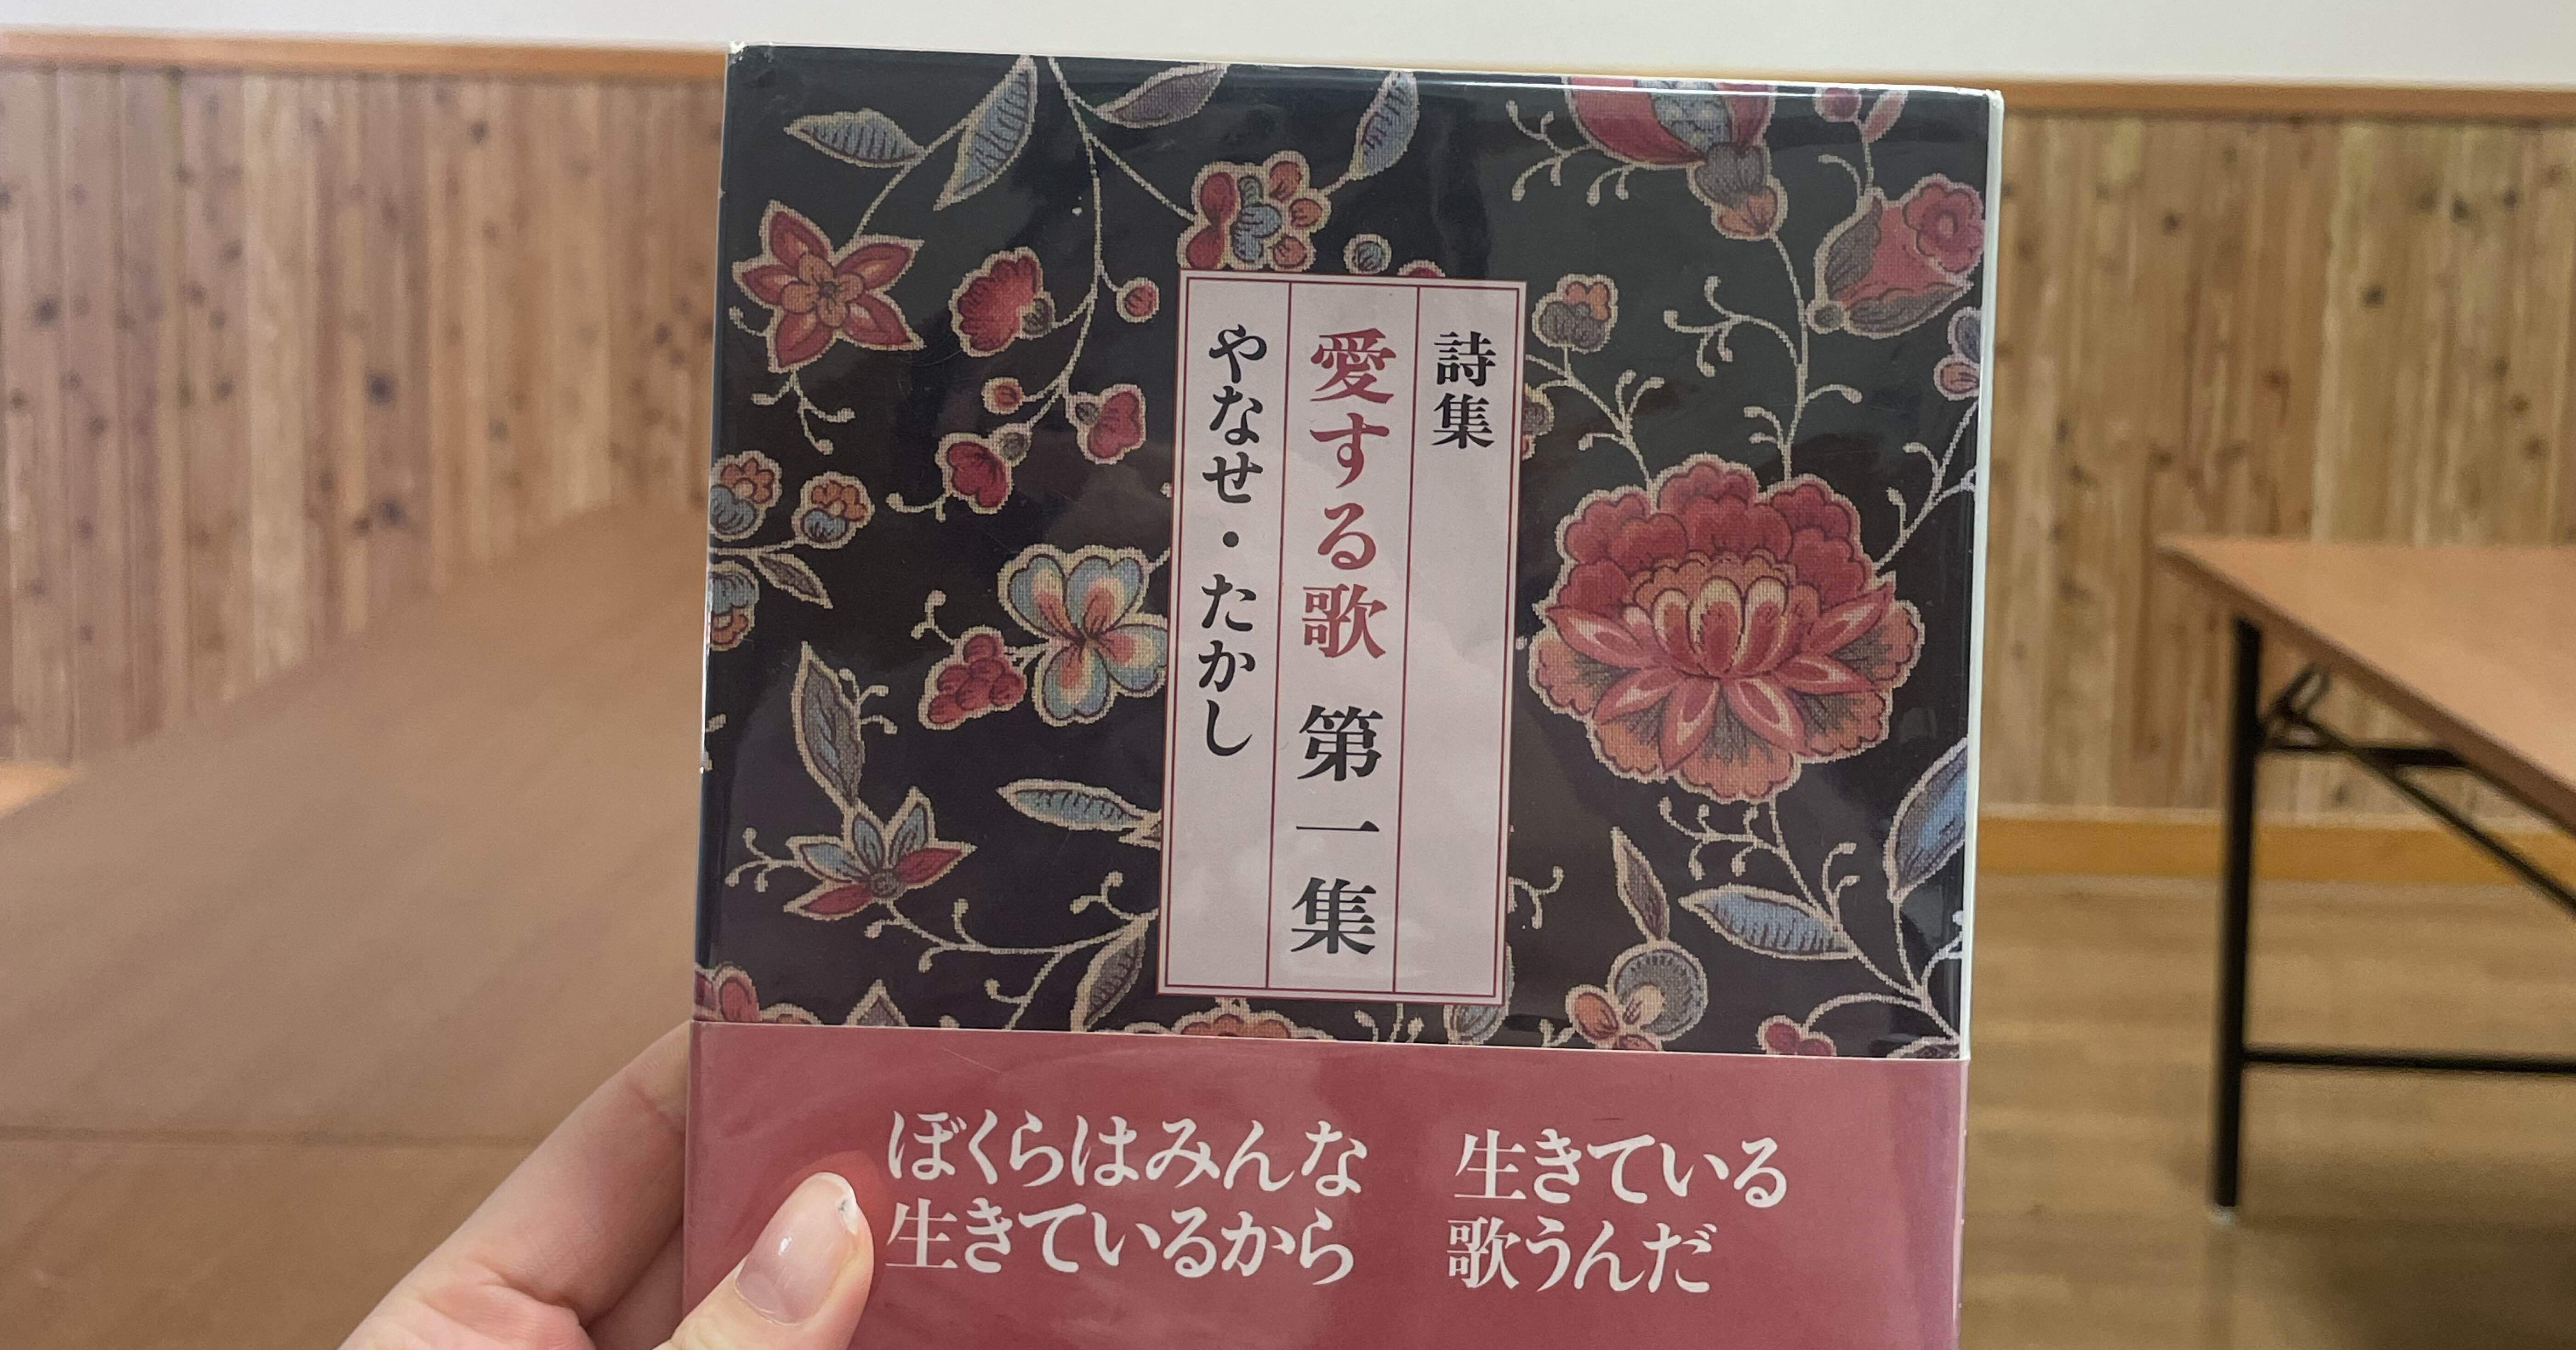 詩集
愛する歌 第一集
やなせ・たかし
ぼくらはみんな 生きている
生きているから 歌うんだ